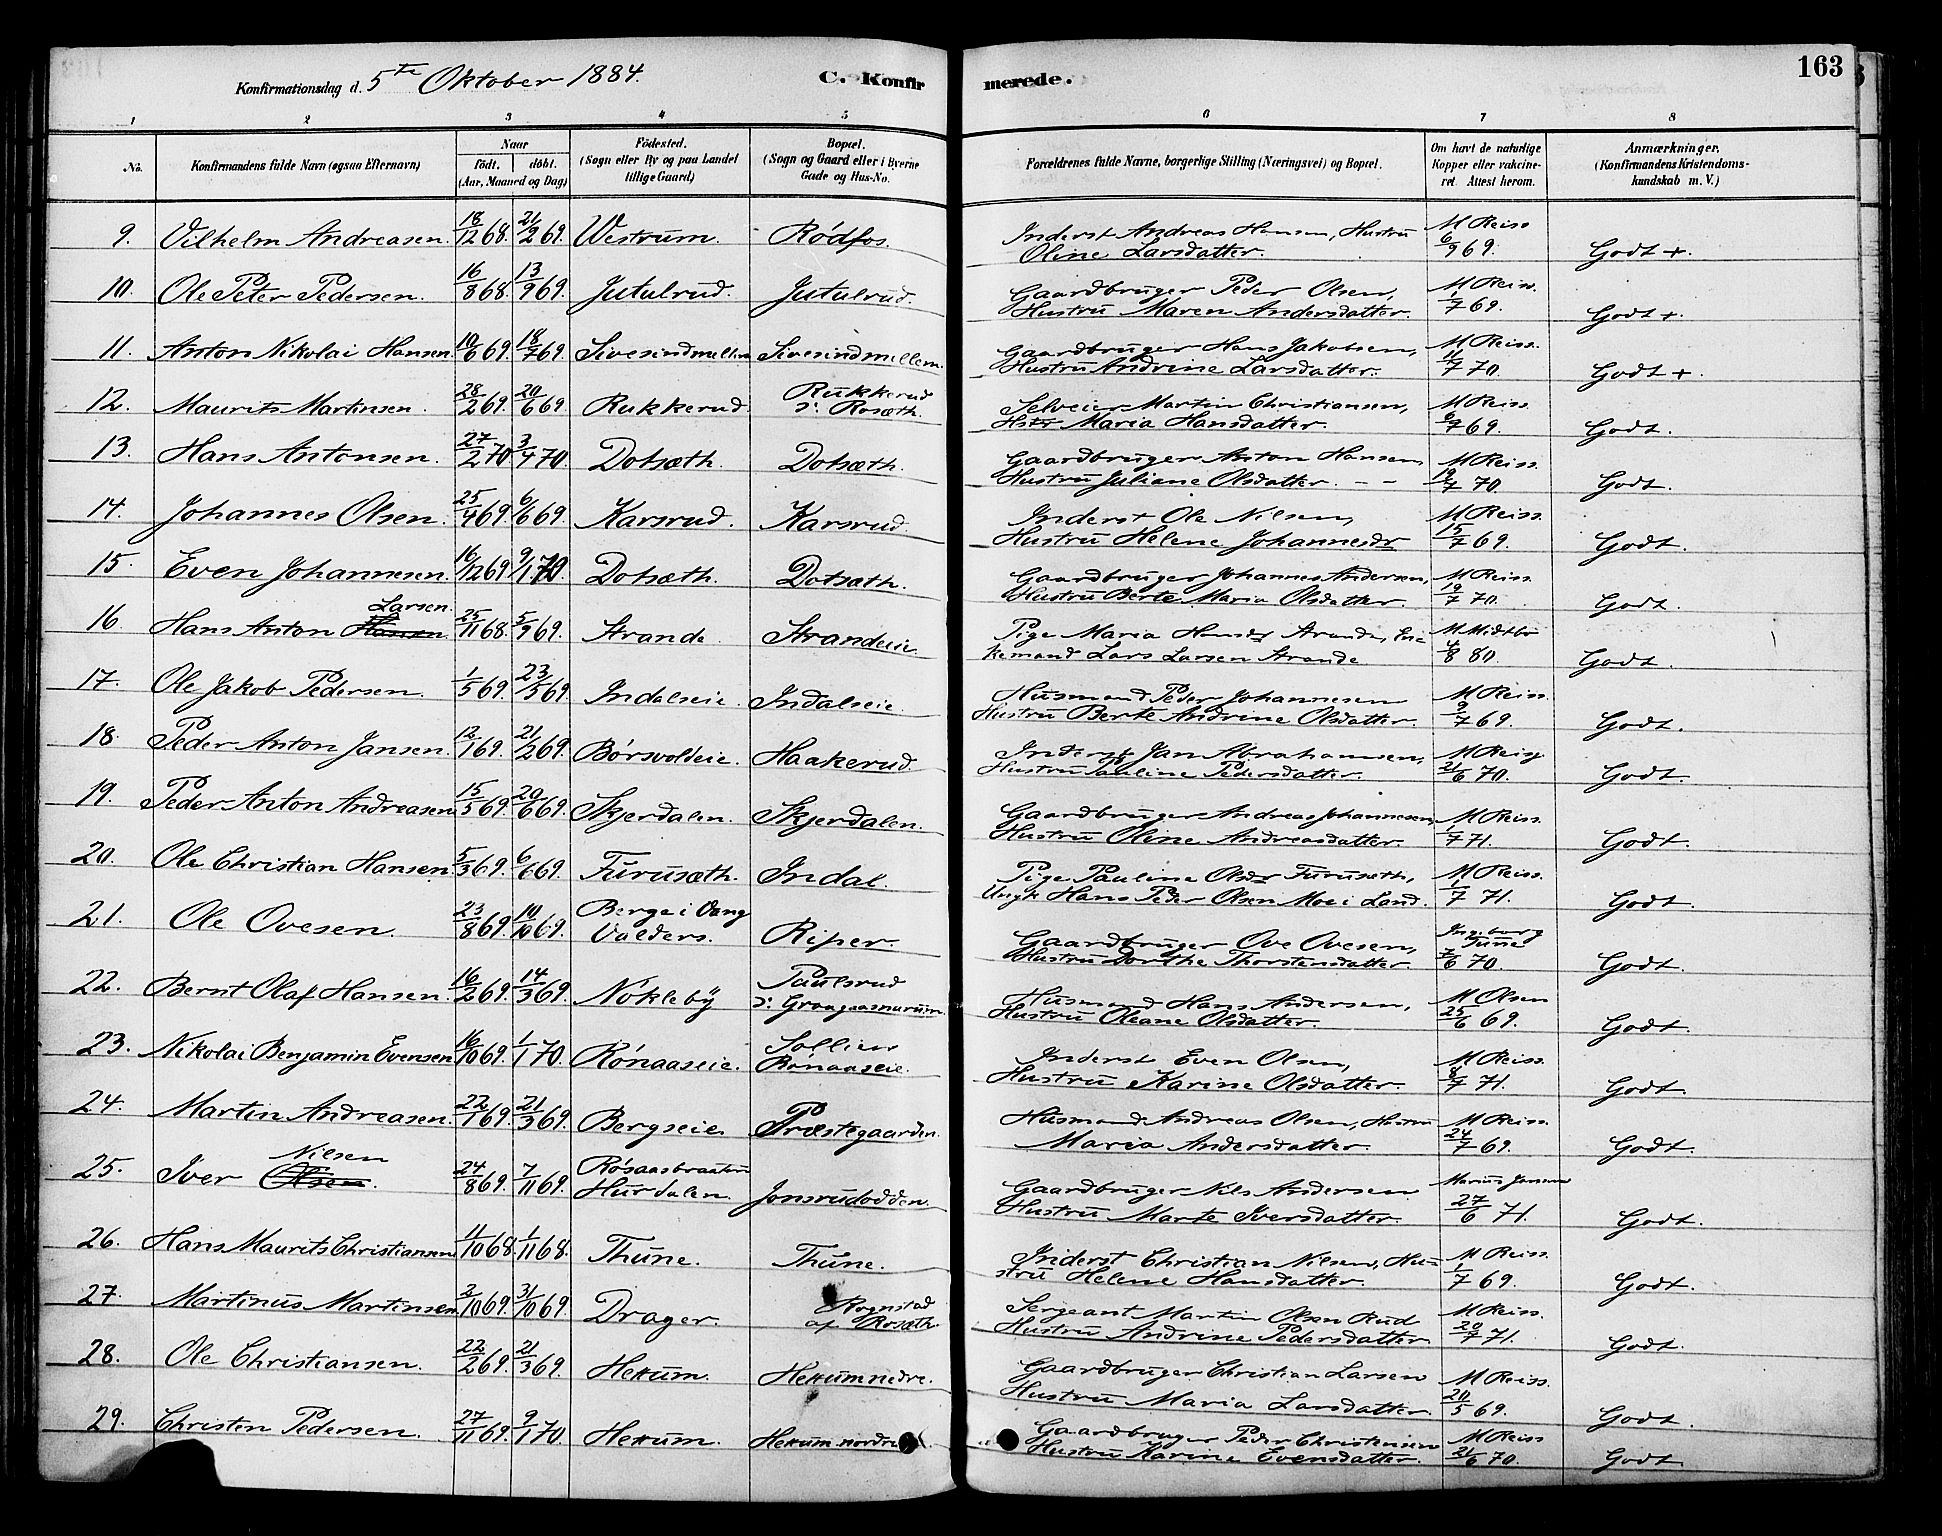 Konfirmationsdag d. 5te Oktober 1884.
C. Konfirmerede.
163
1 2 3 4 5 6 7 8
No. | Konfirmandens fulde Navn (ogsaa Efternavn) | Naar födt. döbt. (Aar, Maaned og Dag) | Födested. (Sogn eller By og paa Landet tillige Gaard.) | Bopæl. (Sogn og Gaard eller i Byerne Gade og Hus-No. | Forældrenes fulde Navne, borgerlige Stilling (Næringsvei) og Bopæl. | Om havt de naturlige Kopper eller vakcineret. Attest herom. | Anmærkninger. (Konfirmandens Kristendomskundskab m. V.)
9. Vilhelm Andreasen. 18/12 68. 21/2 69. Westrum. Rödfos. Inderst Andreas Hansen, Hustru Oline Larsdatter. M Reiss 6/9 69. Godt +.
10. Ole Peter Pedersen. 16/8 68. 13/9 69. Jutulrud. Jutulrud. Gaardbruger Peder Olsen, Hustru Maren Andersdatter. M Reiss. 1/7 69. Godt +
11. Anton Nikolai Hansen 10/6 69. 18/7 69. Sivesindmellem Sivesindmellem. Gaardbruger Hans Jakobsen, Hustru Andrine Larsdatter. M Reiss. 11/7 70. Godt +.
12. Maurits Martinsen. 28/2 69. 20/6 69 Rukkerud Rukkerud s: Rosæth. Selveier Martin Christiansen, Hstr Maria Hansdatter. M Reiss. 69. Godt.
13. Hans Antonsen. 27/2 70 3/4 70. Dotsæth. Dotsæth. Gaardbruger Anton Hansen, Hustru Juliane Olsdatter. - - M Reiss. 70. Godt.
14. Johannes Olsen. 25/4 69. 6/6 69. Karsrud. Karsrud. Inderst Ole Nilsen, Hustru Helene Johannesdr M Reiss. 15/7 69. Godt.
15. Even Johannesen. 16/12 69 9/1 70. Dotsæth. Dotsæth. Gaardbruger Johannes Andersen, Hustru Berte Maria Olsdatter. M Reiss. 19/7 70. Godt.
16. Hans Anton Hansen Larsen. 25/11 68. 5/9 69. Strande. Strandeie. Pige Maria Hansdr Strande, Enkemand Lars Larsen Strande M Midtbö 4/8 80. Godt.
17. Ole Jakob Pedersen. 1/5 69. 23/5 69. Indalseie. Indalseie. Husmand Peder Johannesen Hustru Berte Andrine Olsdatter. M Reiss. 9/7 69. Godt.
18. Peder Anton Jansen. 12/1 69. 21/2 69. Börsvoldeie. Haakerud. Inderst Jan Abrahamsen, Hustru Pauline Pedersdatter. M Reiss 21/6 70. Godt.
19. Peder Anton Andreasen 15/5 69. 20/6 69. Skjerdalen. Skjerdalen. Gaardbruger Andreas Johannesen, Hustru Oline Andreasdatter. M Reiss. 1/7 71. Godt.
20. Ole Christian Hansen 5/3 69. 6/6 69. Furusæth. Indal. Pige Pauline Olsdr Furusæth, Ungk Hans Peder Olsen Moe i Land. M Reiss. 1/7 71. Godt.
21. Ole Ovesen. 23/8 69. 10/10 69. Berge i Vang Valders. Ripser. Gaardbruger Ove Ovesen, Hustru Dorthe Thorstensdatter. Ingeborg Tune 7/6 70. Godt.
22. Bernt Olaf Hansen. 16/2 69. 14/3 69. Nökleby Paulsrud s: Husmand Hans Andersen, Hustru Oleane Olsdatter. M Olsen 25/6 69. Godt.
23. Nikolai Benjamin Evensen 16/10 69. 1/1 70. Rönaaseie. Sollien Rönaaseie. Inderst Even Olsen, Hustru Karine Olsdatter. M Reiss. 8/7 71. Godt.
24. Martin Andreasen. 22/1 69. 21/3 69. Bergseie Præstegaarden. Husmand Andreas Olsen, Hustru Maria Andersdatter. M Reiss. 24/7 69. Godt.
25. Iver Olsen Nilsen. 24/8 69. 7/11 69. Rösaasbraaten Hurdalen. Jonsrudodden. Gaardbruger Nils Andersen Hustru Marte Iversdatter. Marius Jansen 27/6 71. Godt.
26. Hans Maurits Christiansen 11/10 68. 1/11 68. Thune. Thune. Inderst Christian Nilsen, Hustru Helene Hansdatter. M Reiss. 1/7 69. Godt.
27. Martinus Martinsen 3/10 69. 31/10 69. Drager. Rognstad af Rosæth. Sergeant Martin Olsen Rud Hustru Andrine Pedersdatter M Reiss. 20/7 71. Godt.
28. Ole Christiansen. 22/2 69. 21/3 69. Hekum. Hekum nedre. Gaardbruger Christian Larsen Hustru Maria Larsdatter. M Reiss. 20/5 69. Godt.
29. Christen Pedersen. 27/11 69. 9/1 70. Hekum. Hekum nordre Gaardbruger Peder Christensen Hustru Karine Evensdatter. M Reiss 21/6 70. Godt